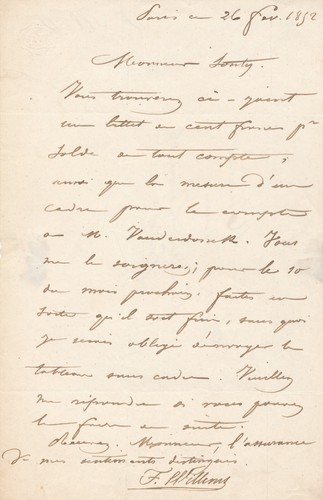 Paris ce 26 fév. 1852
Monsieur Souty.
Vous trouverez ci-joint
un billet de cent francs pr
solde de tout compte,
ainsi que la mesure d'un
cadre pour le compte
de M. Vanderdonck. Vous
me le soignerez; pour le 10
du mois prochain. faites en
sorte qu'il soit fini, sans quoi
je serais obligé d'envoyer le
tableau sans cadre. Veuillez
me répondre si vous pouvez
le faire de suite.
Recevez, Monsieur, l'assurance
De mes sentiments distingués.
F. Willems